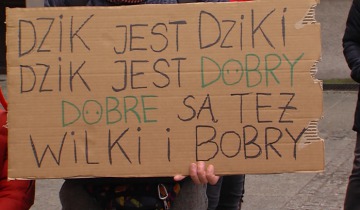 DZIK JEST DZIKI
DZIK JEST DOBRY
DOBRE SĄ TEŻ
WILKI i BOBRY